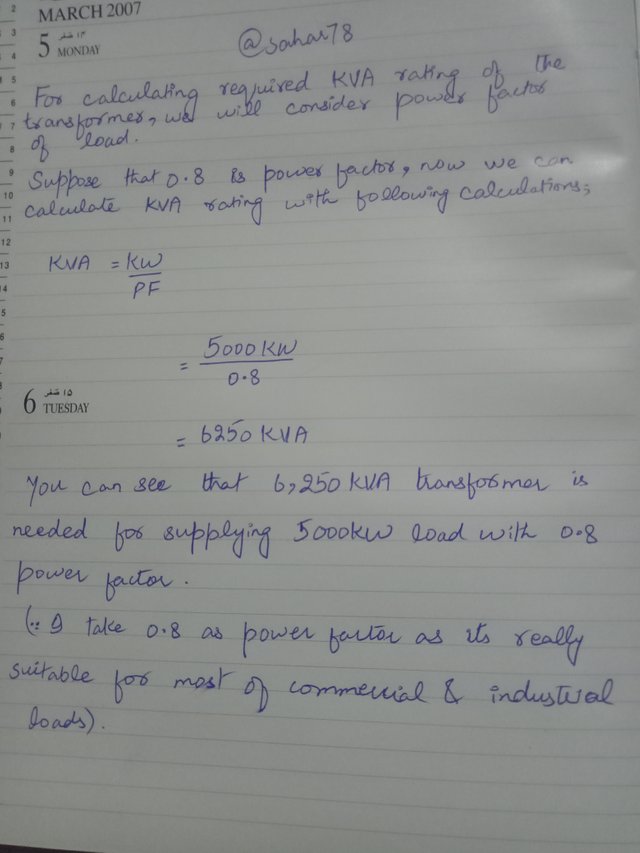 MARCH 2007
5 ١٤ صفر
MONDAY
@sahar78
For calculating required KVA rating of the
transformer, we will consider power factor
of load.
Suppose that 0.8 is power factor, now we can
calculate KVA rating with following calculations;
KVA = KW
PF
= 5000 KW
0.8
6 ١٥ صفر
TUESDAY
= 6250 KVA
You can see that 6,250 KVA transformer is
needed for supplying 5000KW load with 0.8
power factor.
(∵ I take 0.8 as power factor as its really
suitable for most of commercial & industrial
loads).
2
3
4
5
6
7
8
9
10
11
12
13